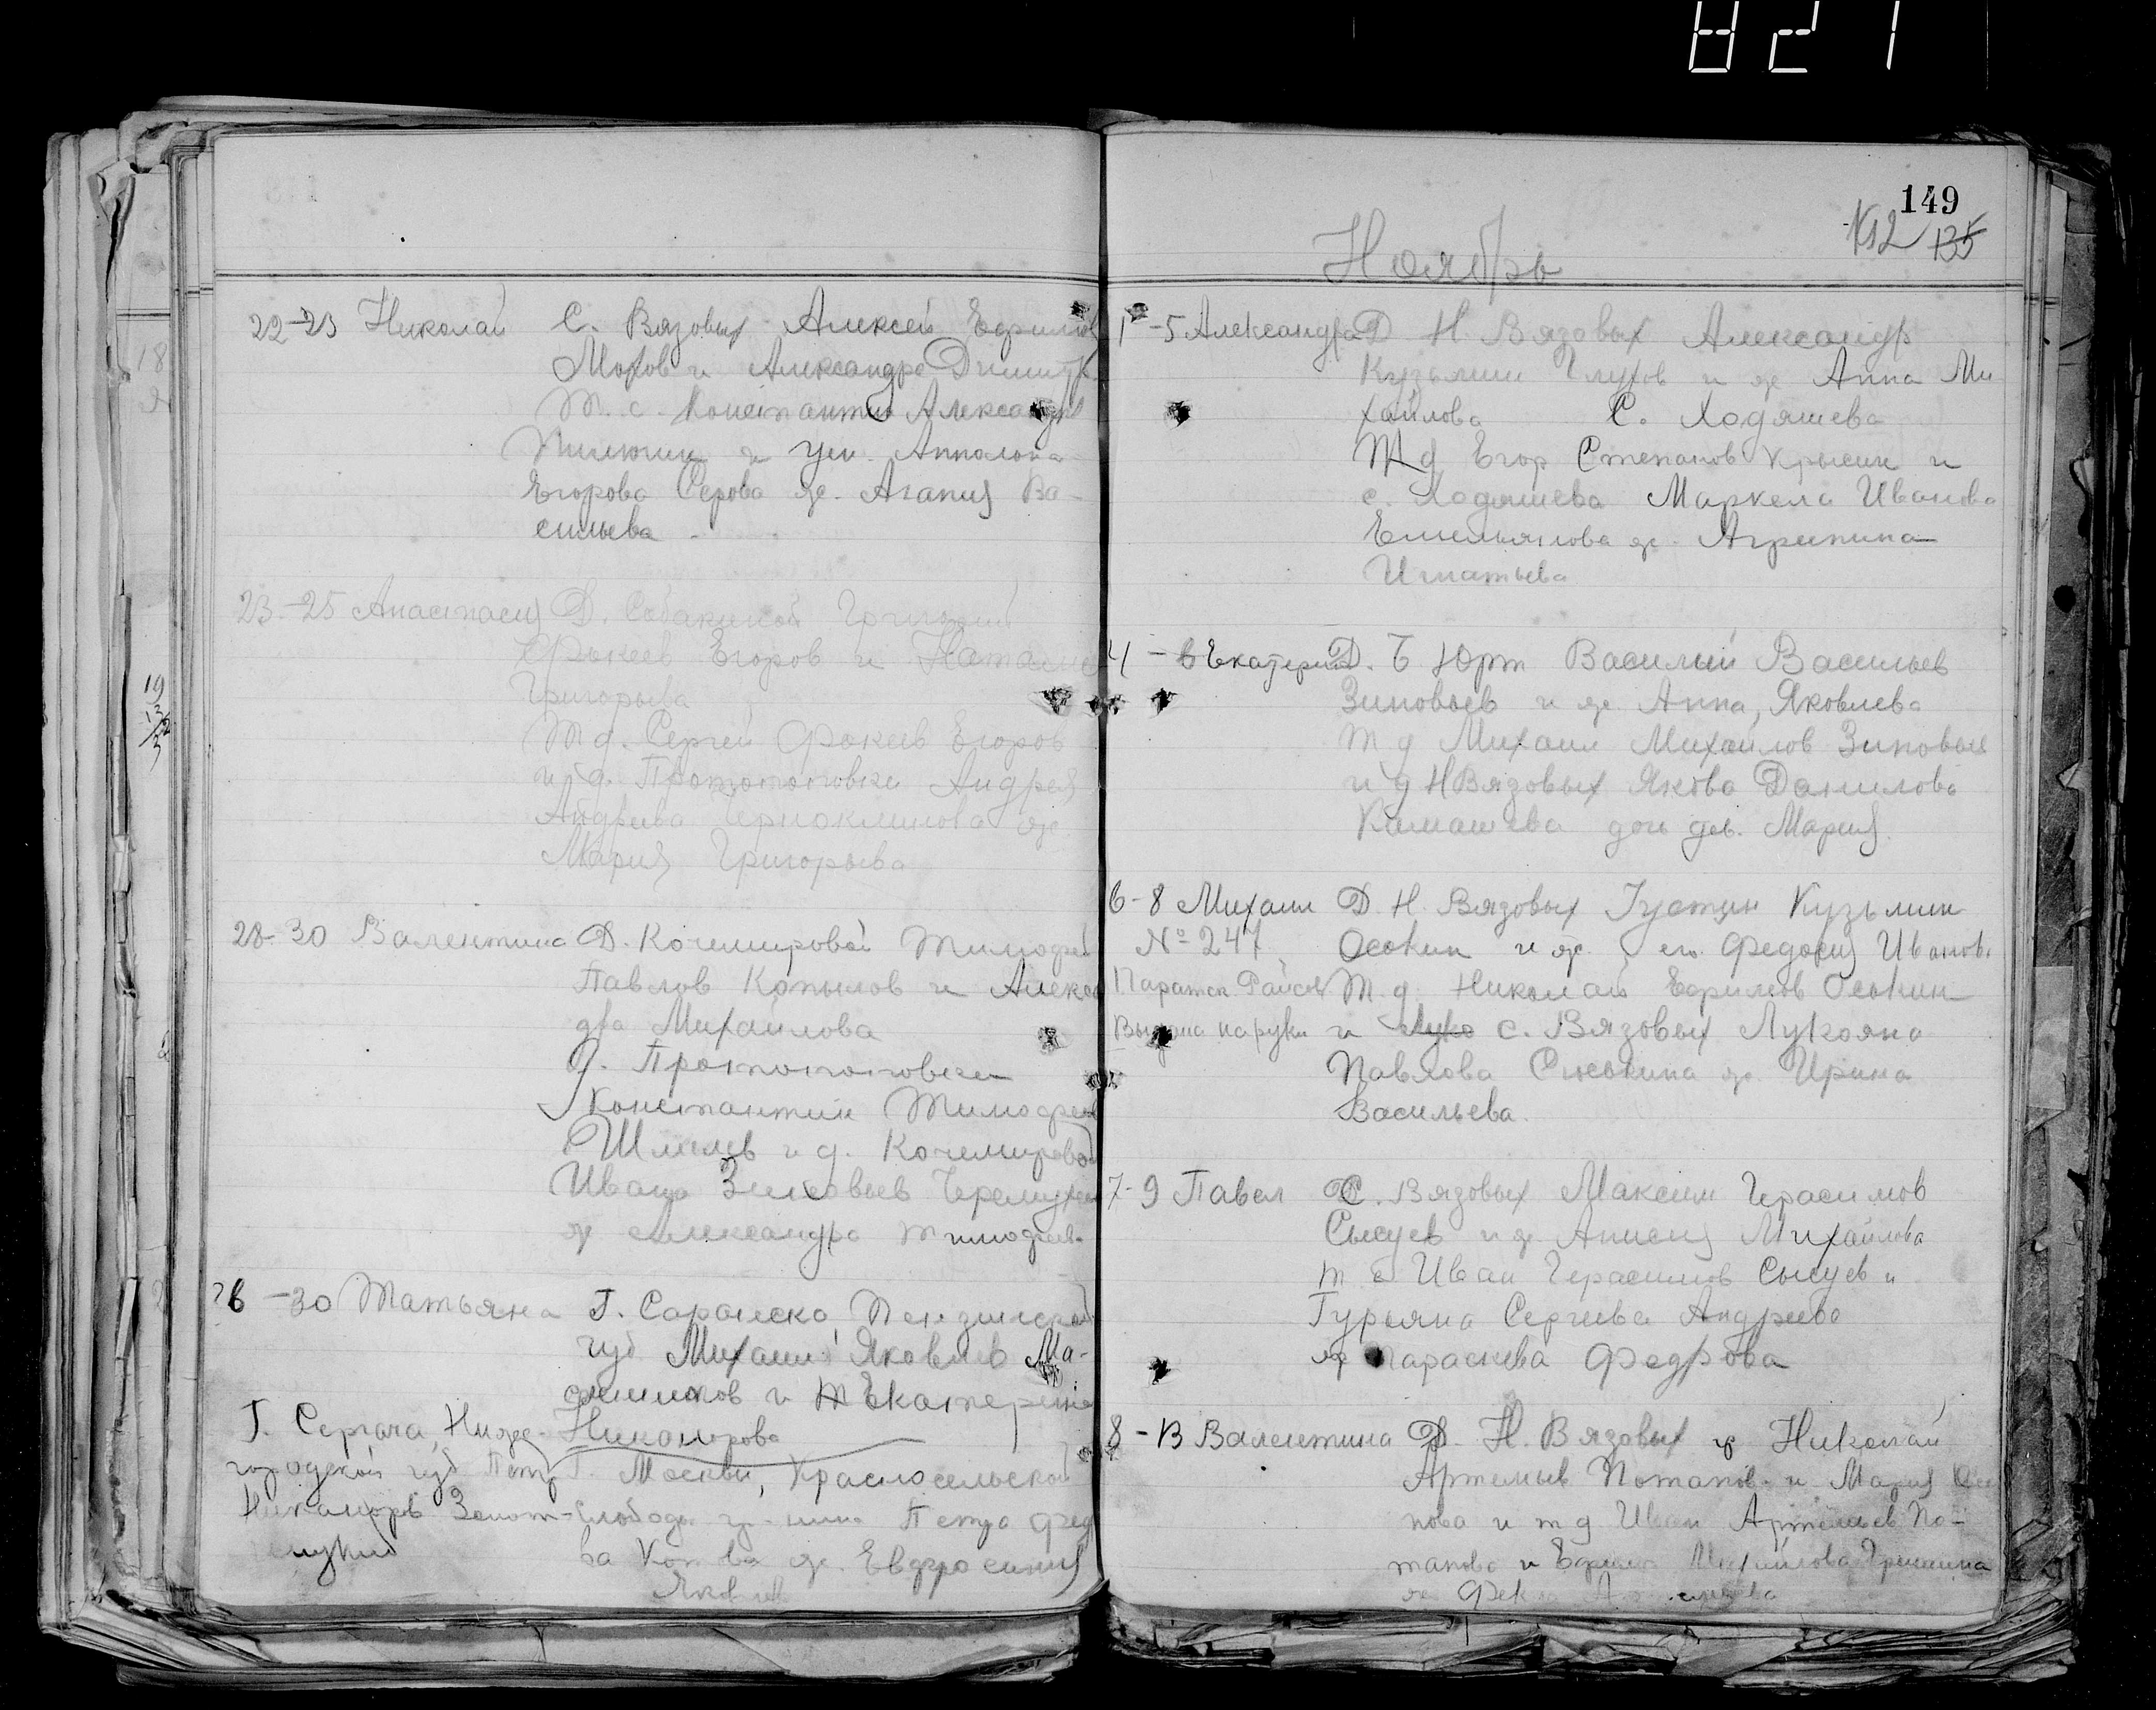 821
22-23 Николай С. Вязовых Алексей Ефимов
Мохов и Александра Димитр.
Т. с. Константин Александр
Пилюгин и ум. Апполона
Егорова Серова ж. Агапия Ва-
сильева
23-25 Анастасия Д. Собакиной Григорий
Фокеев Егоров и Наталия
Григорьева
Т д. Сергей Фокеев Егоров
и д. Протопоповки Андрея
Андреева ж.
Мария Григорьева
28-30 Валентина Д. Кочемировой Тимофей
Павлов Копылов и Алексан
дра Михаилова
Д. Протопоповки
Константин Тимофеев
Шмелев и д. Кочемировой
Ивана Зиновьев
ж Александра Тимофеев.
26-30 Татьяна Г. Саранска, Пензинской
губ Михаил Яковлев Ма-
и Екатерина
Никонорова
Г. Сергача, Ниже-
городской губ Петр
Никаноров
Г. Москвы, Красносельской
слободы гр-нина Петра Фед
ва ж. Евдфросиния
Яковлев
149
135
Ноябрь
1-5 Александра Д Н. Вязовых Александр
Кузьмин Глухов и ж Анна Ми
хайлова С. Ходяшева
Т д Егор Степанов Крысин и
с. Ходяшева Маркела Иванова
Емельянова ж. Агрипина
Игнатьева
4-6 Екатерина Д. Б Юрт Василий Васильев
Зиновьев и ж Анна, Яковлева
Т д Михаил Михайлов Зиновьев
и д Н Вязовых Якова Данилова
Камашева дочь дев. Мария.
6-8 Михаил Д. Н. Вязовых Густин Кузьмин
№ 247 Осокин и ж. его Федосия Иванов.
Паратск. Райсов Т. д. Николай Ефимов Осокин
Выдана на руки и с. Вязовых Лукояна
Павлова ж. Ирина
Васильева.
7-9 Павел С. Вязовых Максим Герасимов
Сысуев и ж Анисия Михайлова
т с Иван Герасимов Сысуев и
Гурьяна Сергиева Андреева
ж Параскева Федрова
8-В Валентина Д. Н. Вязовых гр Николай
Артемьев Потапов и Мария
и т д Иван Артемьев По-
тапова и Михайлова Гришина
ж Фекла